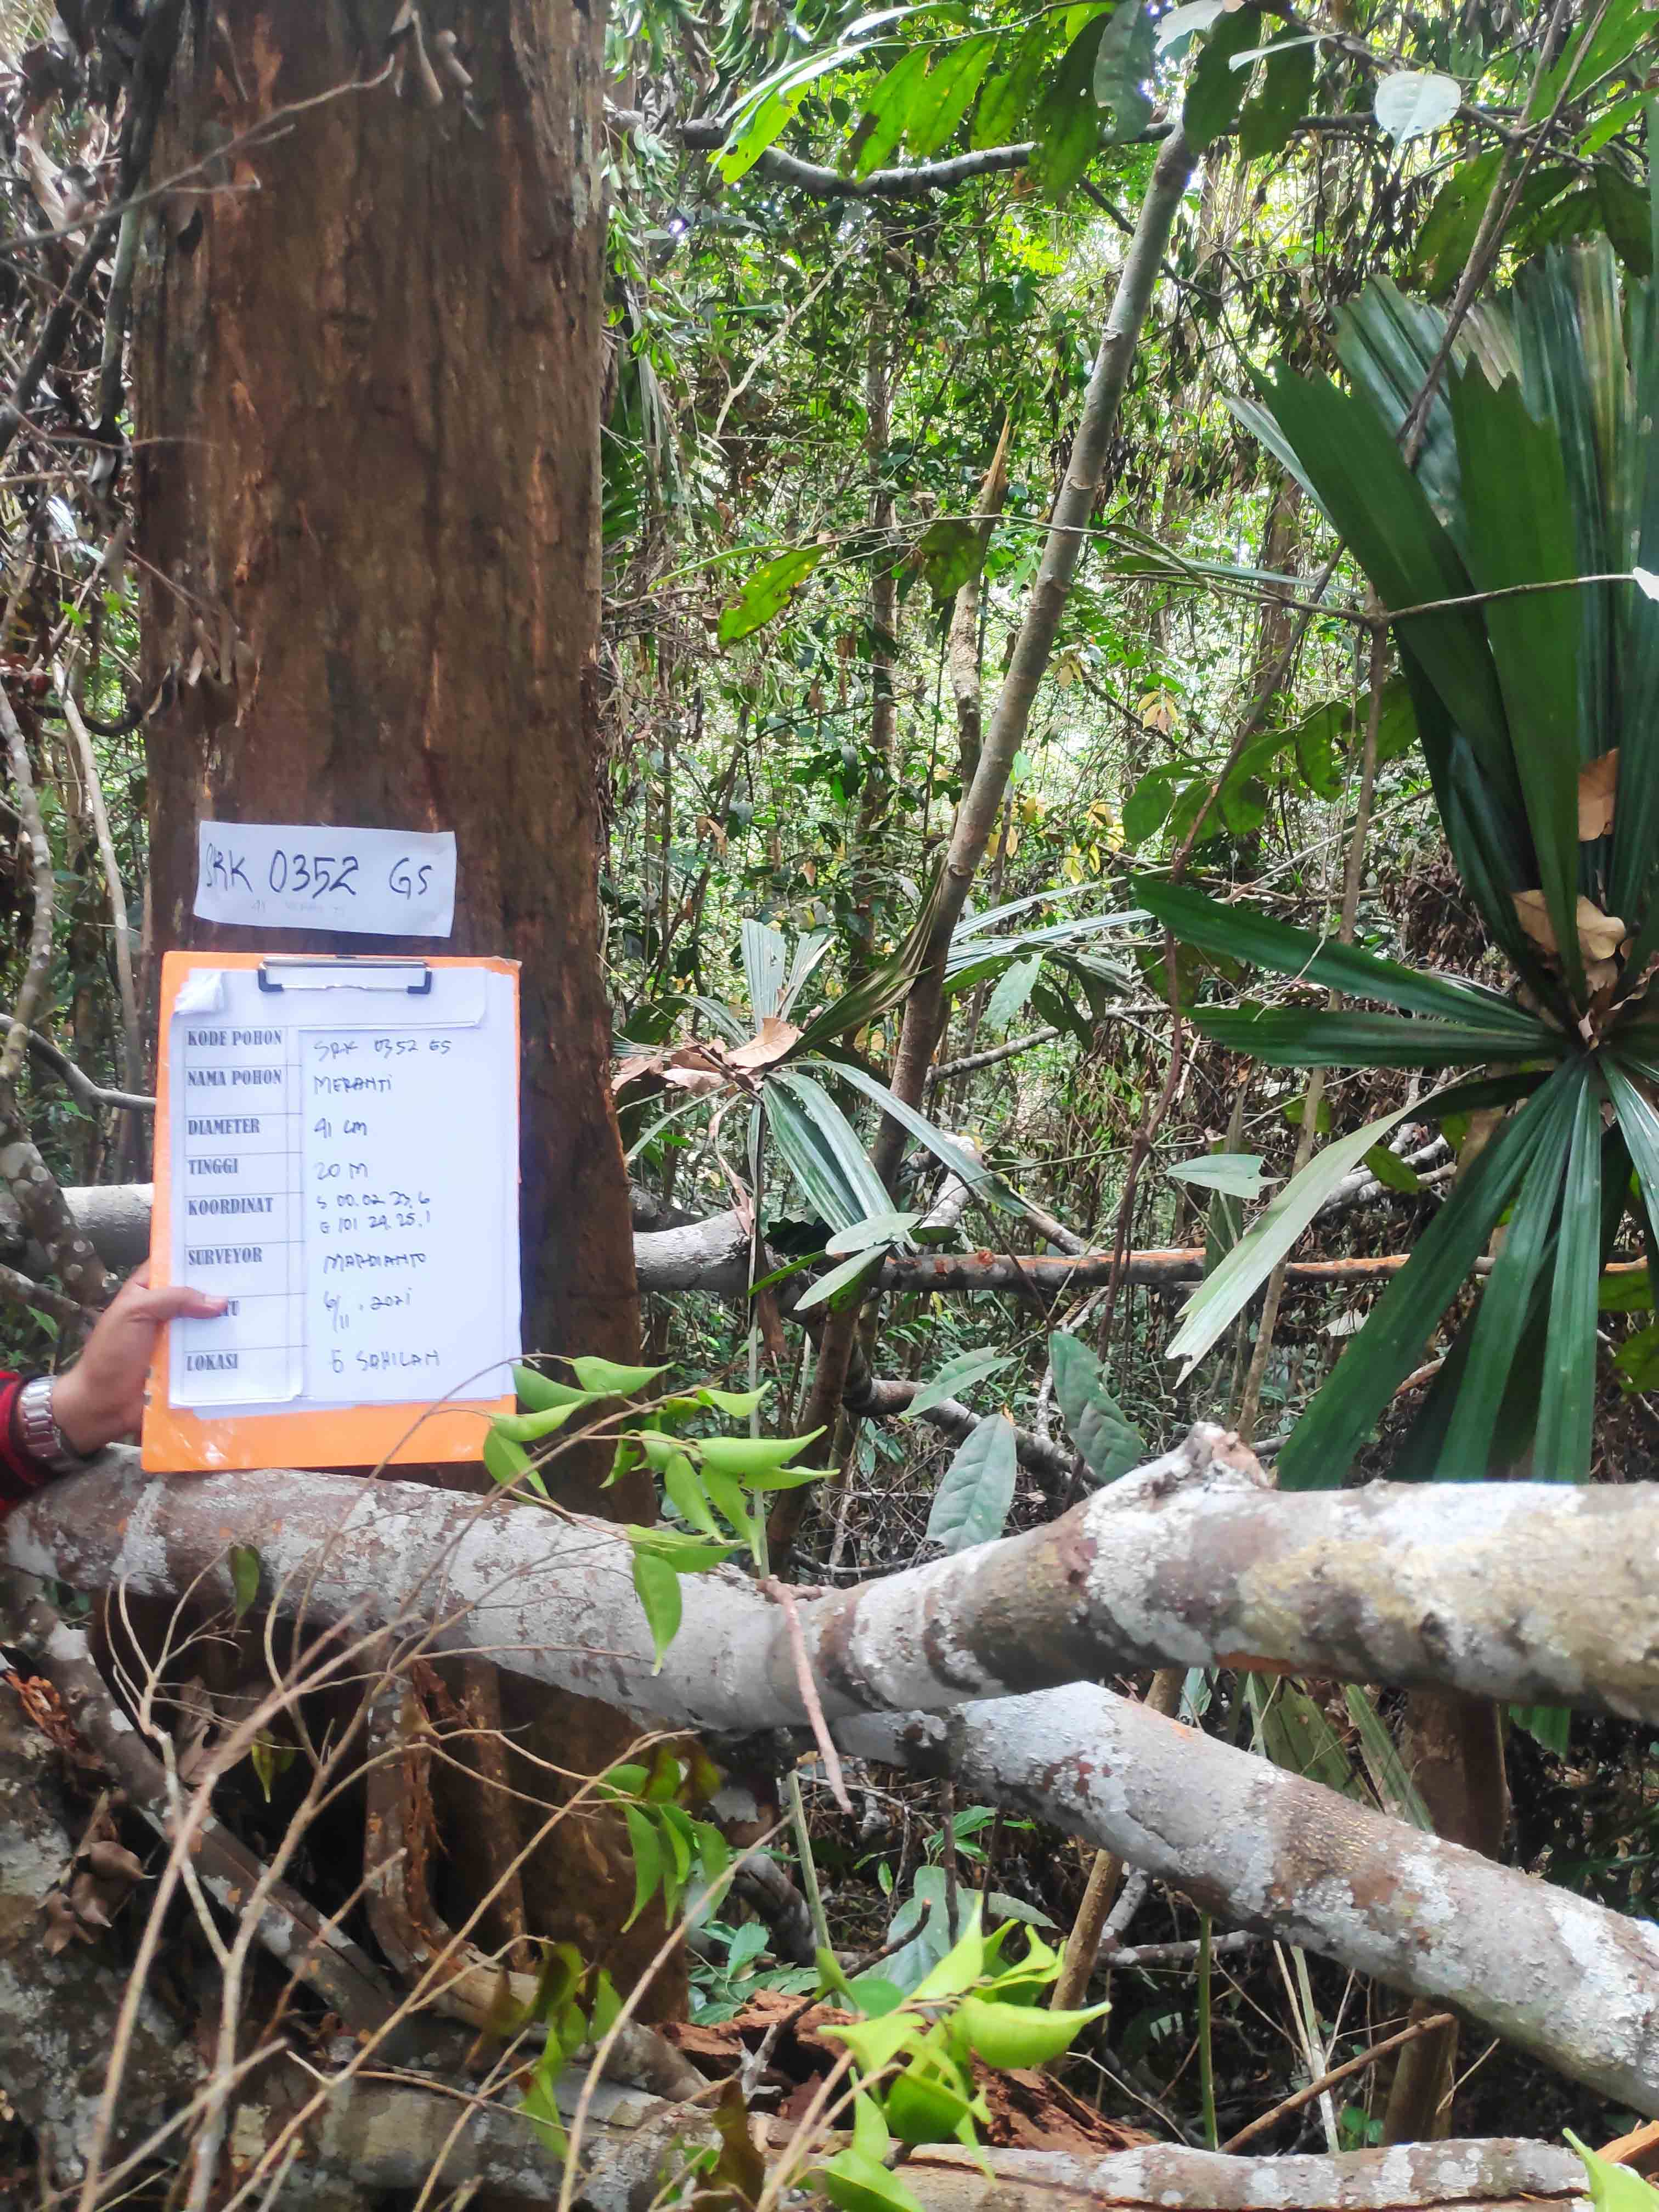 SRK 0352 GS
KODE POHON SRK 0352 GS
NAMA POHON MERANTi
DIAMETER 41 cm
TINGGI 20 M
KOORDINAT S 00.02.23,6
E 101 29.25,1
SURVEYOR MARDIANTO
6/11.2021
LOKASI G SAHILAN